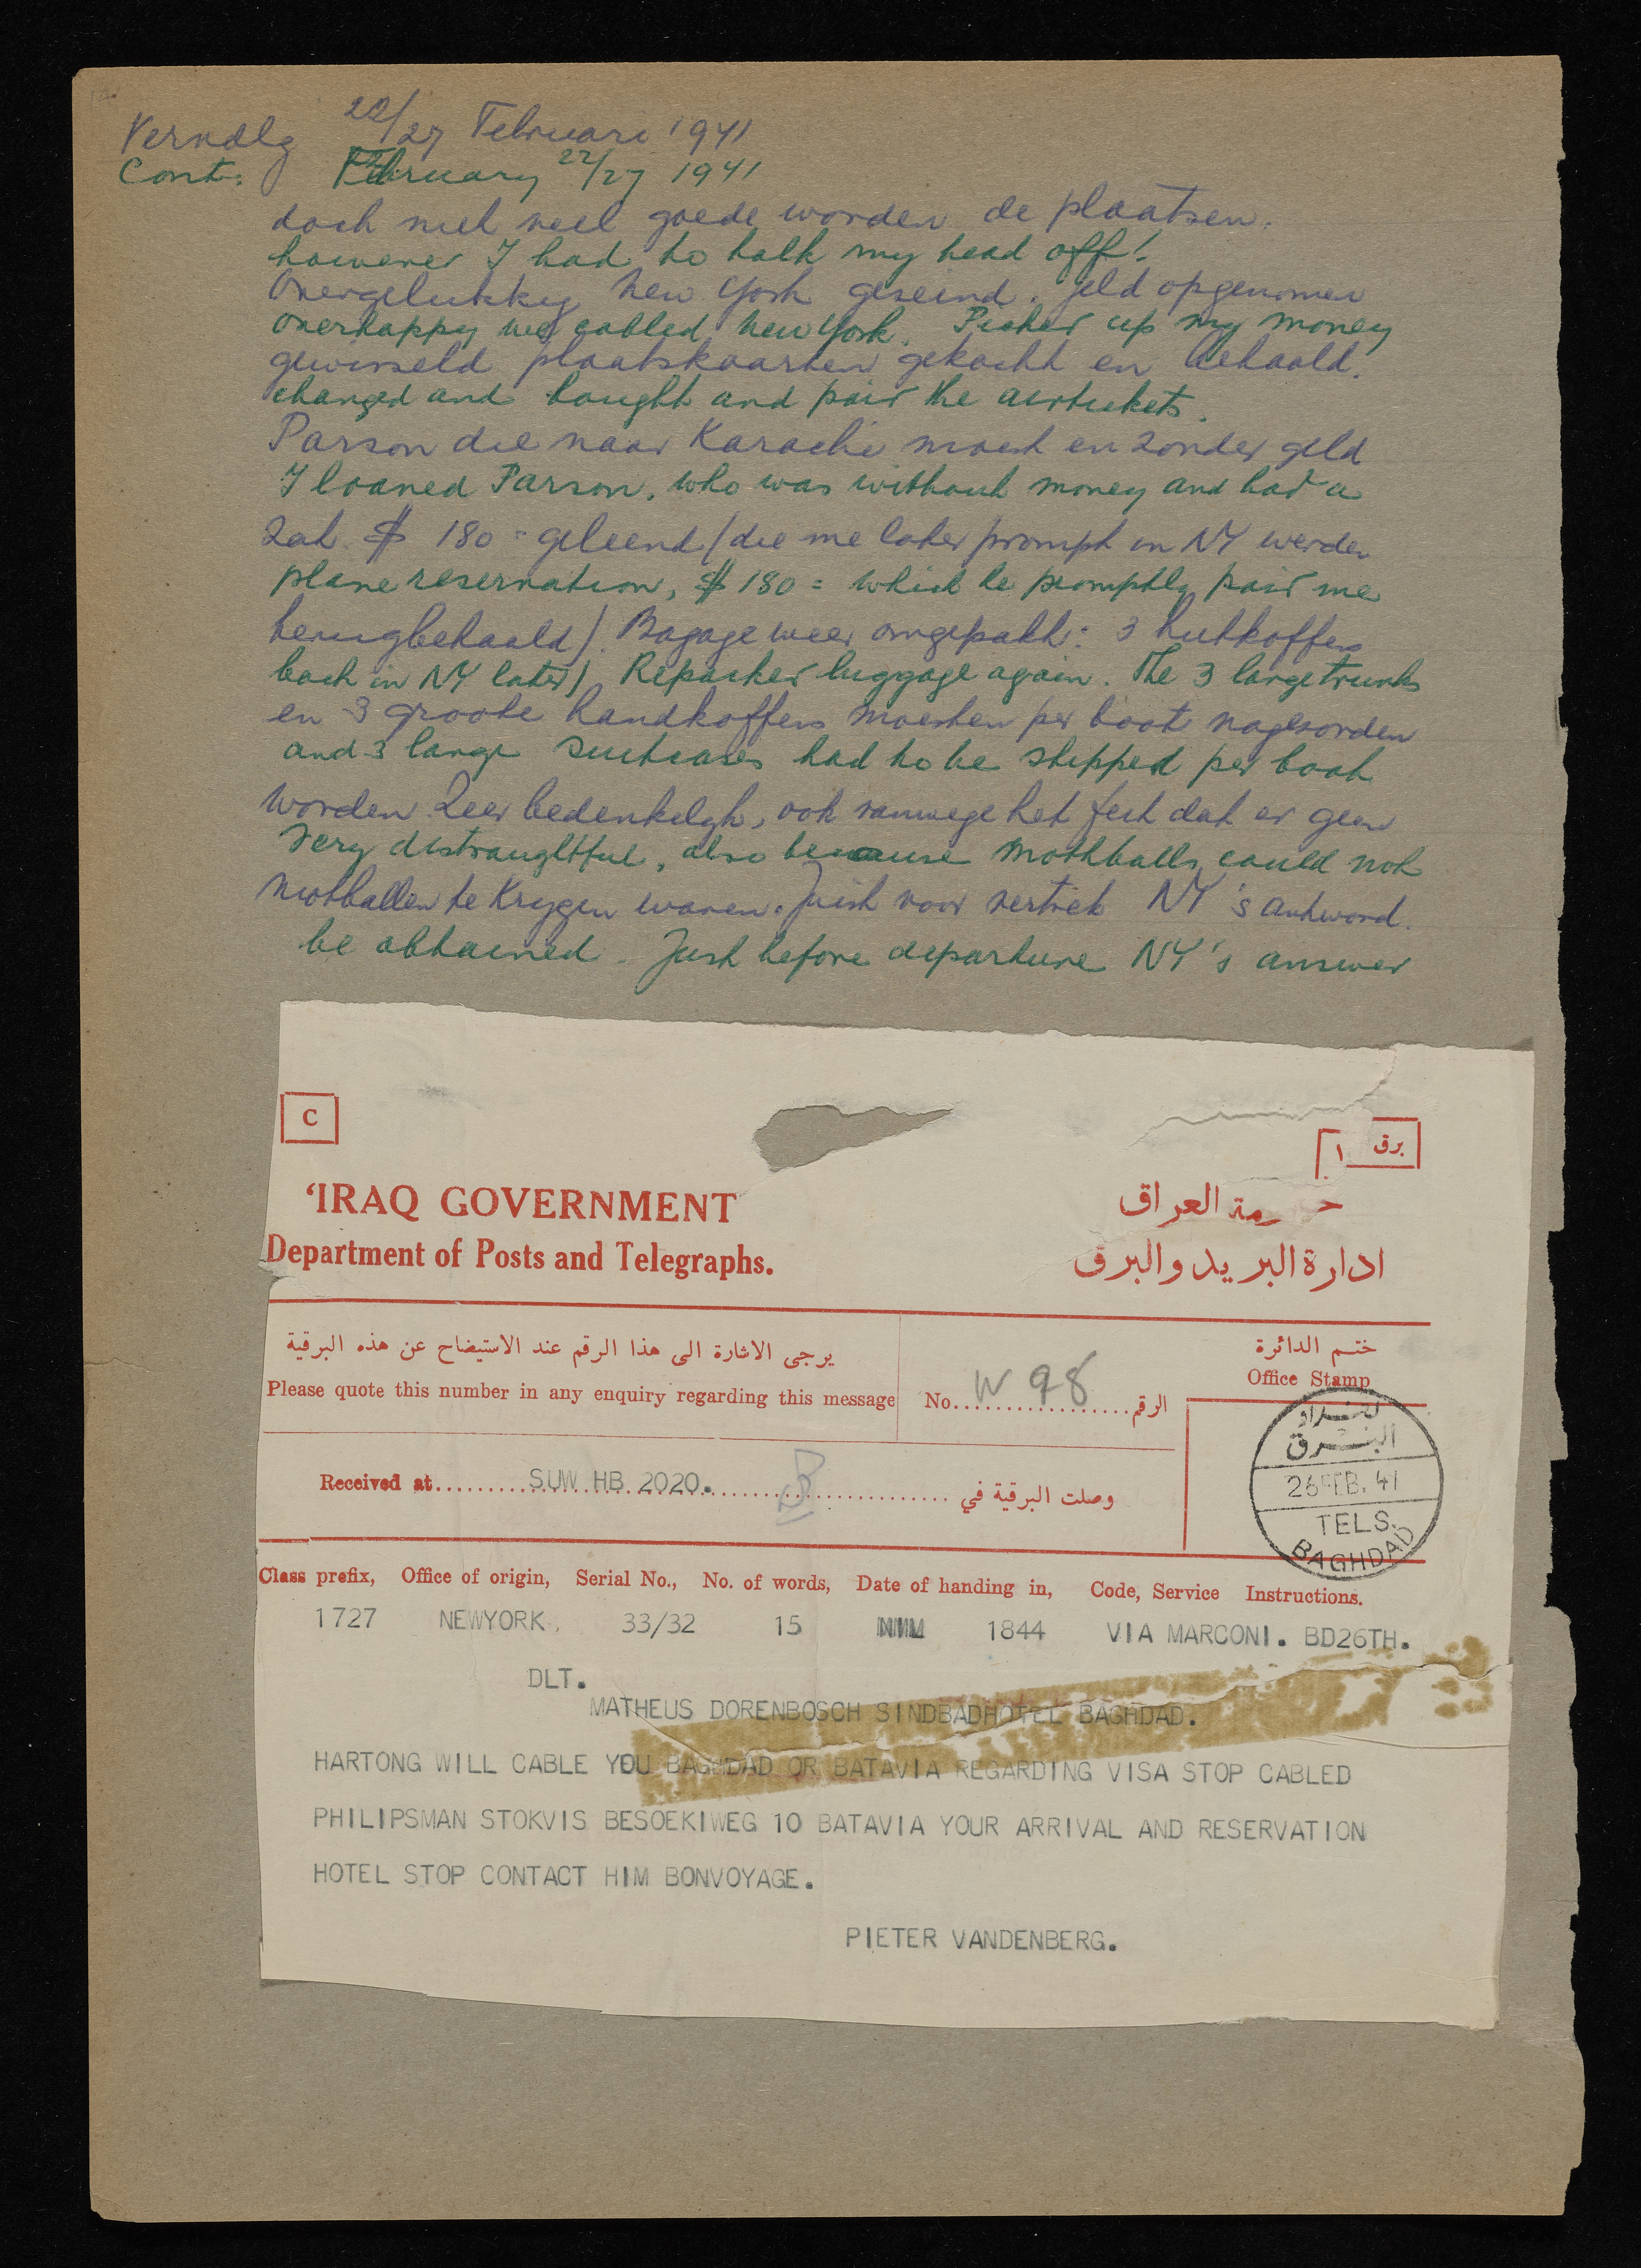 Vervolg 22/27 Februari 1941
Cont: February 22/27 1941
doch met veel goede woorden de plaatsen.
however I had to talk my head off!
Overgelukkig New York geseind. Geld opgenomen
overhappy we cabled New York. Picked up my money
gewisseld plaatskaarten gekocht en betaald.
changed and bought and paid the airtickets.
Parson die naar Karachi moest en zonder geld
I loaned Parson, who was without money and had a
zat $ 180 = geleend (die me later prompt in NY werden
plane reservation, $ 180 = which he promptly paid me
terugbetaald). Bagage weer omgepakt: 3 hutkoffers
back in NY later) Repacked luggage again. The 3 large trunks
en 3 groote handkoffers moesten per boot nagezonden
and 3 large suitcases had to be shipped per boat
worden. Zeer bedenkelyk, ook vanwege het feit dat er geen
Very distraughtful, also because mothballs could not
motballen te krygen waren. Juist voor vertrek NY's antwoord.
be obtained. Just before departure NY's answer
C
برق ١
'IRAQ GOVERNMENT
مة العراق
Department of Posts and Telegraphs.
ادارة البريد والبرق
يرجى الاشارة الى هذا الرقم عند الاستيضاح عن هذه البرقية
Please quote this number in any enquiry regarding this message
No. W 98 الرقم
ختم الدائرة
Office Stamp
بغداد
البرق
26 FEB. 41
TELS.
BAGHDAD
Received at SUW HB 2020. وصلت البرقية في
Class prefix, Office of origin, Serial No., No. of words, Date of handing in, Code, Service Instructions.
1727 NEWYORK. 33/32 15 1844 VIA MARCONI. BD26TH.
DLT.
MATHEUS DORENBOSCH SINDBADHOTEL BAGHDAD.
HARTONG WILL CABLE YOU BAGHDAD OR BATAVIA REGARDING VISA STOP CABLED
PHILIPSMAN STOKVIS BESOEKIWEG 10 BATAVIA YOUR ARRIVAL AND RESERVATION
HOTEL STOP CONTACT HIM BONVOYAGE.
PIETER VANDENBERG.